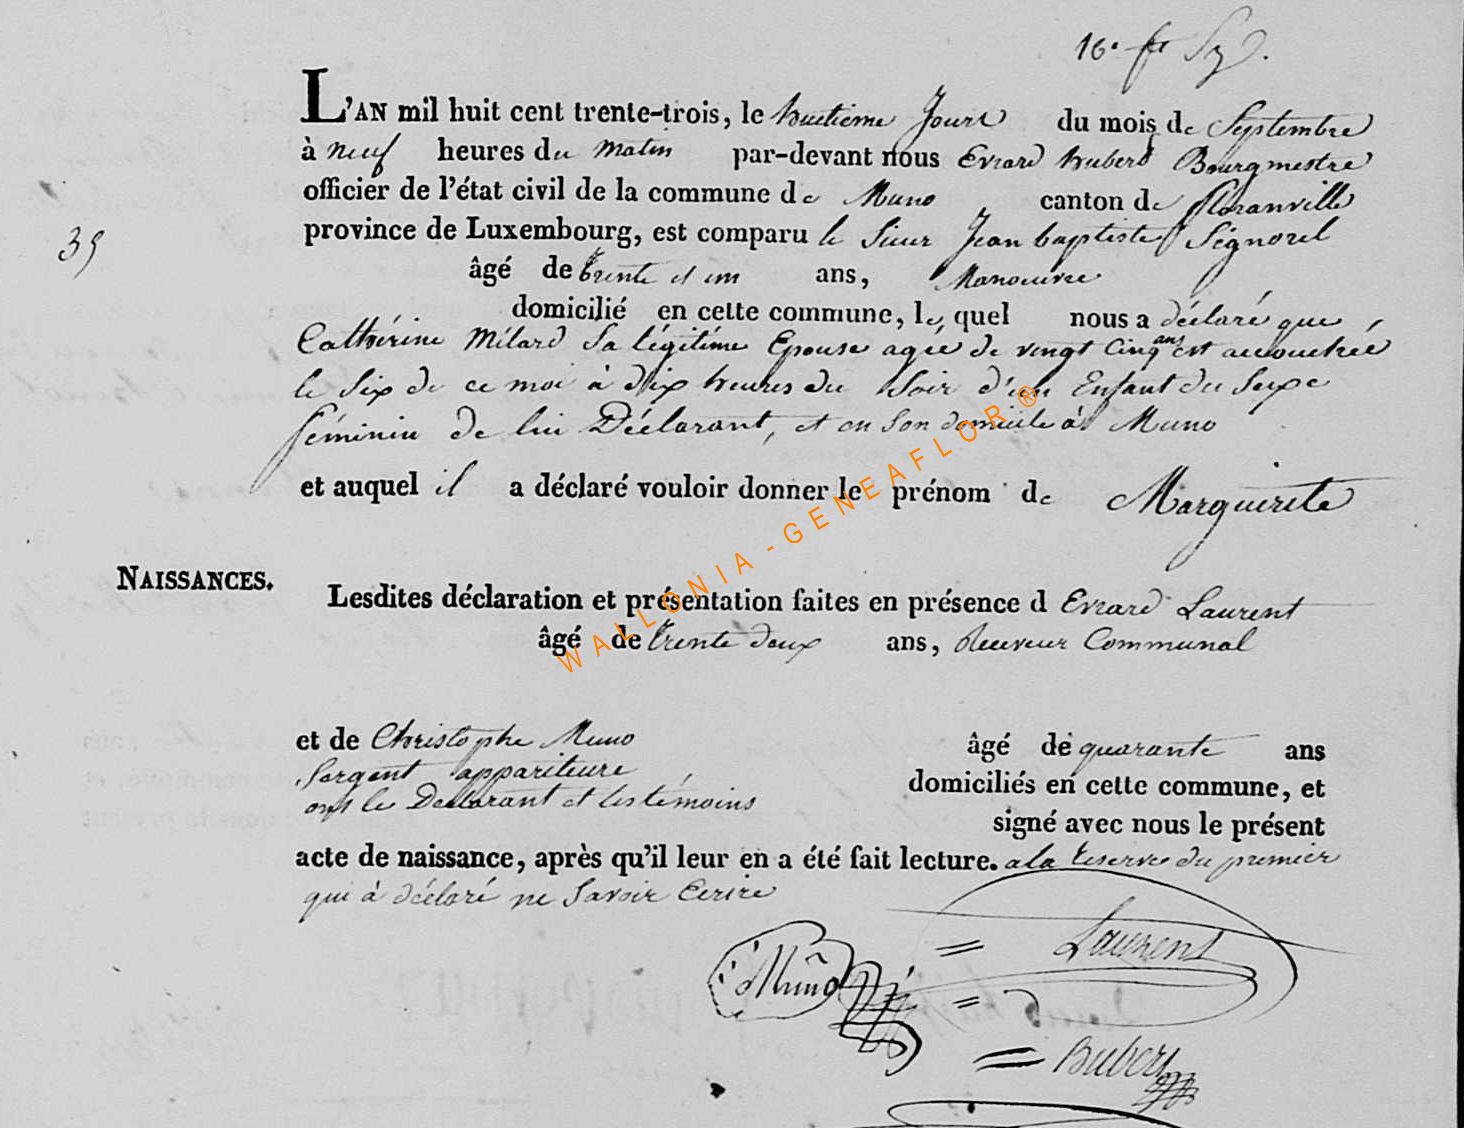 16.
L'AN mil huit cent trente-trois, le huitieme Jour du mois de Septembre
à neuf heures du matin par-devant nous Evrard hubert Bourgmestre
officier de l'état civil de la commune de Muno canton de floranville
province de Luxembourg, est comparu le Sieur Jean baptiste Ségnorel
35
âgé de trente et un ans, Manoeuvre
domicilié en cette commune, le quel nous a déclaré que
Cathérine Milard Sa légitime Epouse agée de vingt Cinq ans est accouchée
le Six de ce moi à dix heures du Soir d'un Enfant du Sexe
féminin de lui Déclarant, et en Son domicile à Muno
et auquel il a déclaré vouloir donner le prénom de Marguerite
NAISSANCES.
Lesdites déclaration et présentation faites en présence d Evrard Laurent
âgé de trente deux ans, Receveur Communal
et de Christophe Muno âgé de quarante ans
Sergent appariteure domiciliés en cette commune, et
ont le Declarant et les témoins signé avec nous le présent
acte de naissance, après qu'il leur en a été fait lecture. a la reserve du premier
qui à déclaré ne Savoir Ecrire
= Laurent
Muno =
= Hubert
WALLONIA - GENEAFLOR ®